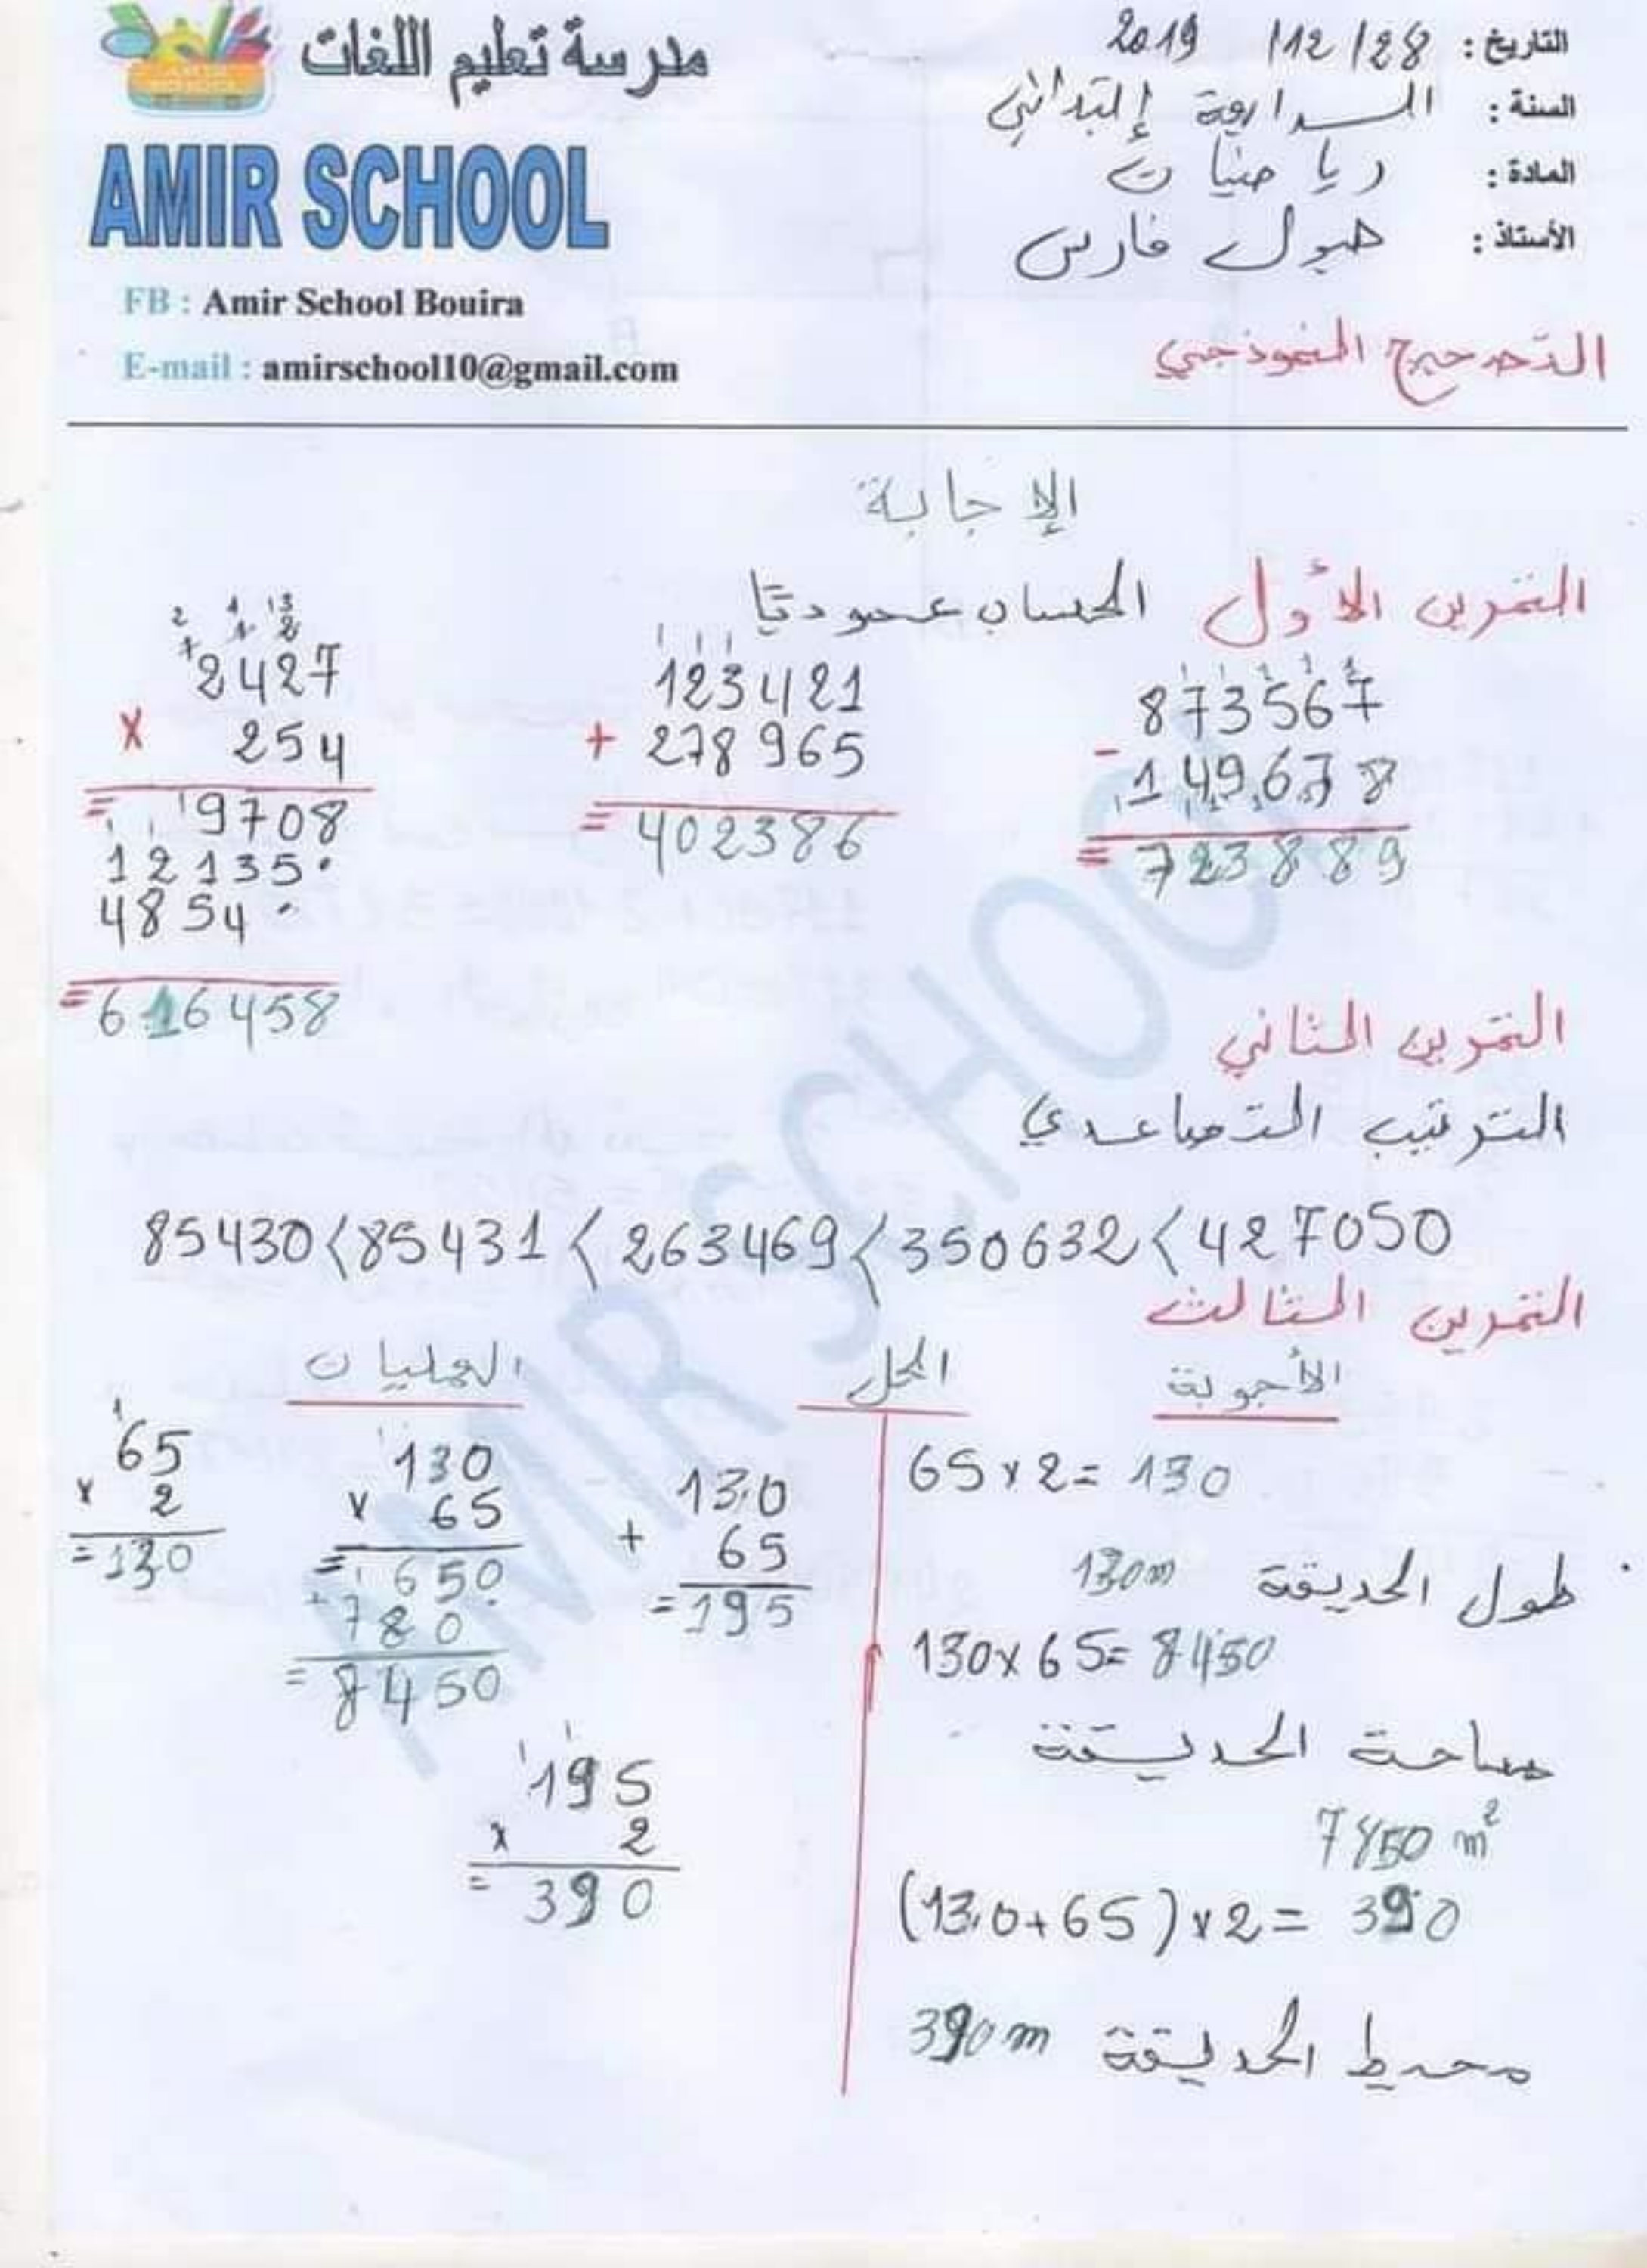 مدرسة تعليم اللغات
AMIR SCHOOL
FB : Amir School Bouira
E-mail : amirschool10@gmail.com
التاريخ : 28/ 12/ 2019
السنة : الرابعة إبتدائي
المادة : رياضيات
الأستاذ : هبول فارس
التصحيح النموذجي
الإجابة
التمرين الأول الحساب عموديا
873567
- 149678
= 723889
123421
+ 278965
= 402386
2427
× 254
= 9708
12135.
4854..
= 616458
التمرين الثاني
الترتيب التصاعدي
85430<85431<263469<350632<427050
التمرين الثالث
الأجوبة الحل العمليات
65×2=130
طول الحديقة 130m
130×65=8450
مساحة الحديقة
7450 m²
(130+65)×2=390
محيط الحديقة 390m
130
+ 65
=195
130
× 65
= 650
+ 780
= 8450
65
× 2
=130
195
× 2
= 390
AMIR SCHOOL